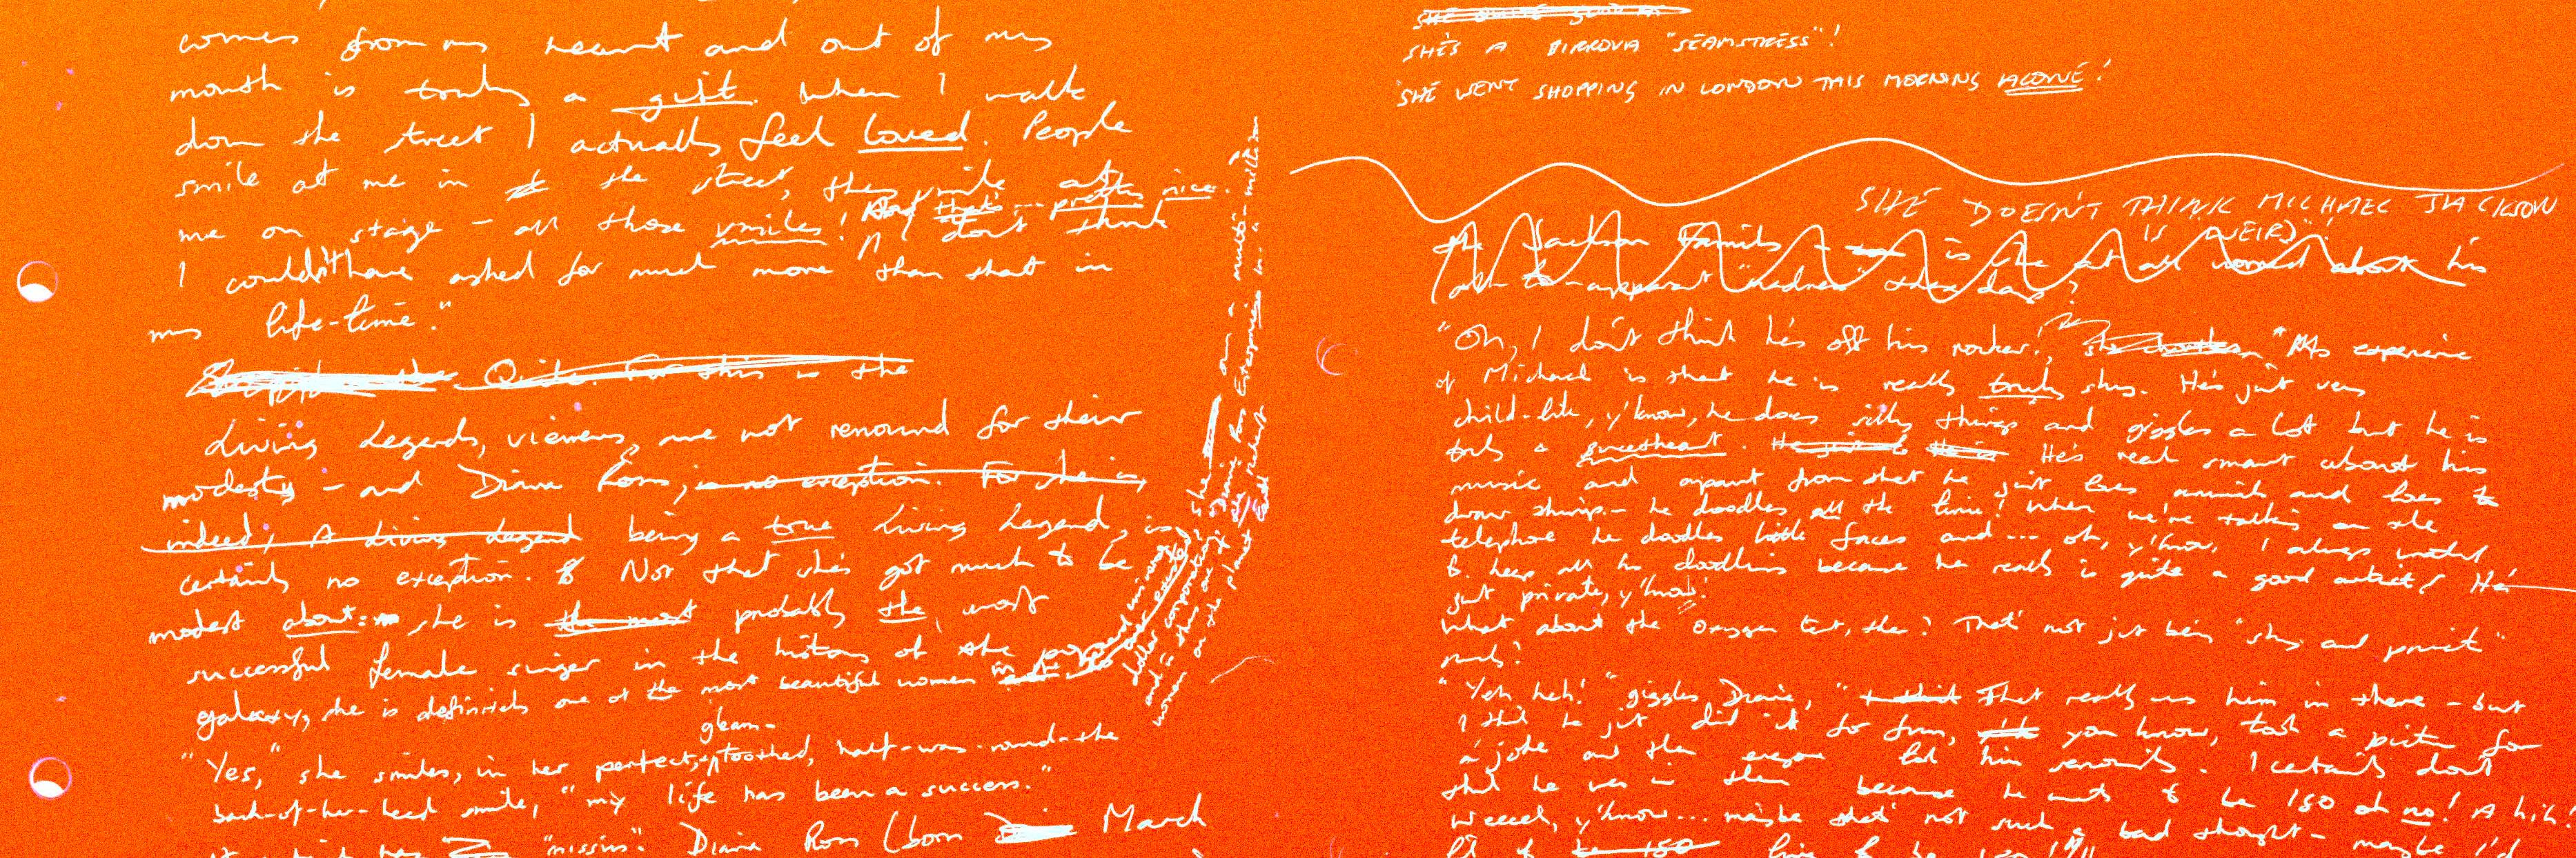 comes from my heart and out of my
mouth is truly a gift. When I walk
down the street I actually feel loved. People
smile at me in the street, they smile at
me on stage - all those smiles! And that's... pretty nice.
I don't think
I couldn't have asked for much more than that in
my life-time."
Quite. For this is the
Living Legends, viewers, are not renound for their
modesty - and Diana Ross, is no exception. For she is,
indeed, A living legend being a true Living Legend, is
certainly no exception. Not that she's got much to be
modest about: she is the most probably the most
successful female singer in the history of the
galaxy, she is definitely one of the most beautiful women
she own a multi-million
dollar corporation, Diana Ross Enterprises Inc. and is thus one of the
women on the planet
gleam-
"Yes," she smiles, in her perfect, toothed, half-way-round-the
back-of-her-head smile, "my life has been a success."
"missis". Diana Ross (born March
SHE'S A "SEAMSTRESS"!
SHE WENT SHOPPING IN LONDON THIS MORNING ALONE!
SHE DOESN'T THINK MICHAEL JACKSON
IS WEIRD!
the Jackson Family - is she at all worried about his
apparent madness these days?
"Oh, I don't think he's off his rocker!, she "My experience
of Michael is that he is really truly shy. He's just very
child-like, y'know, he does silly things and giggles a lot but he is
truly a sweetheart. He's real smart about his
music and apart from that he just loves animals and loves to
draw things - he doodles all the time! When we're talking on the
telephone he doodles little faces and... oh, y'know, I always
keep all his doodlings because he really is quite a good artist! He's
just private, y'know!
What about the Oxygen tent, then? That's not just being "shy and private"
"Yeh heh!" giggles Diana, "That really was him in there - but
I think he just did it for fun, you know, took a picture for
a joke and then everyone had him I certainly don't
think he was in there because he wants to be 150 oh no! A hih!
Weeeeh, y'know... maybe that's not such a bad thought - maybe I'd